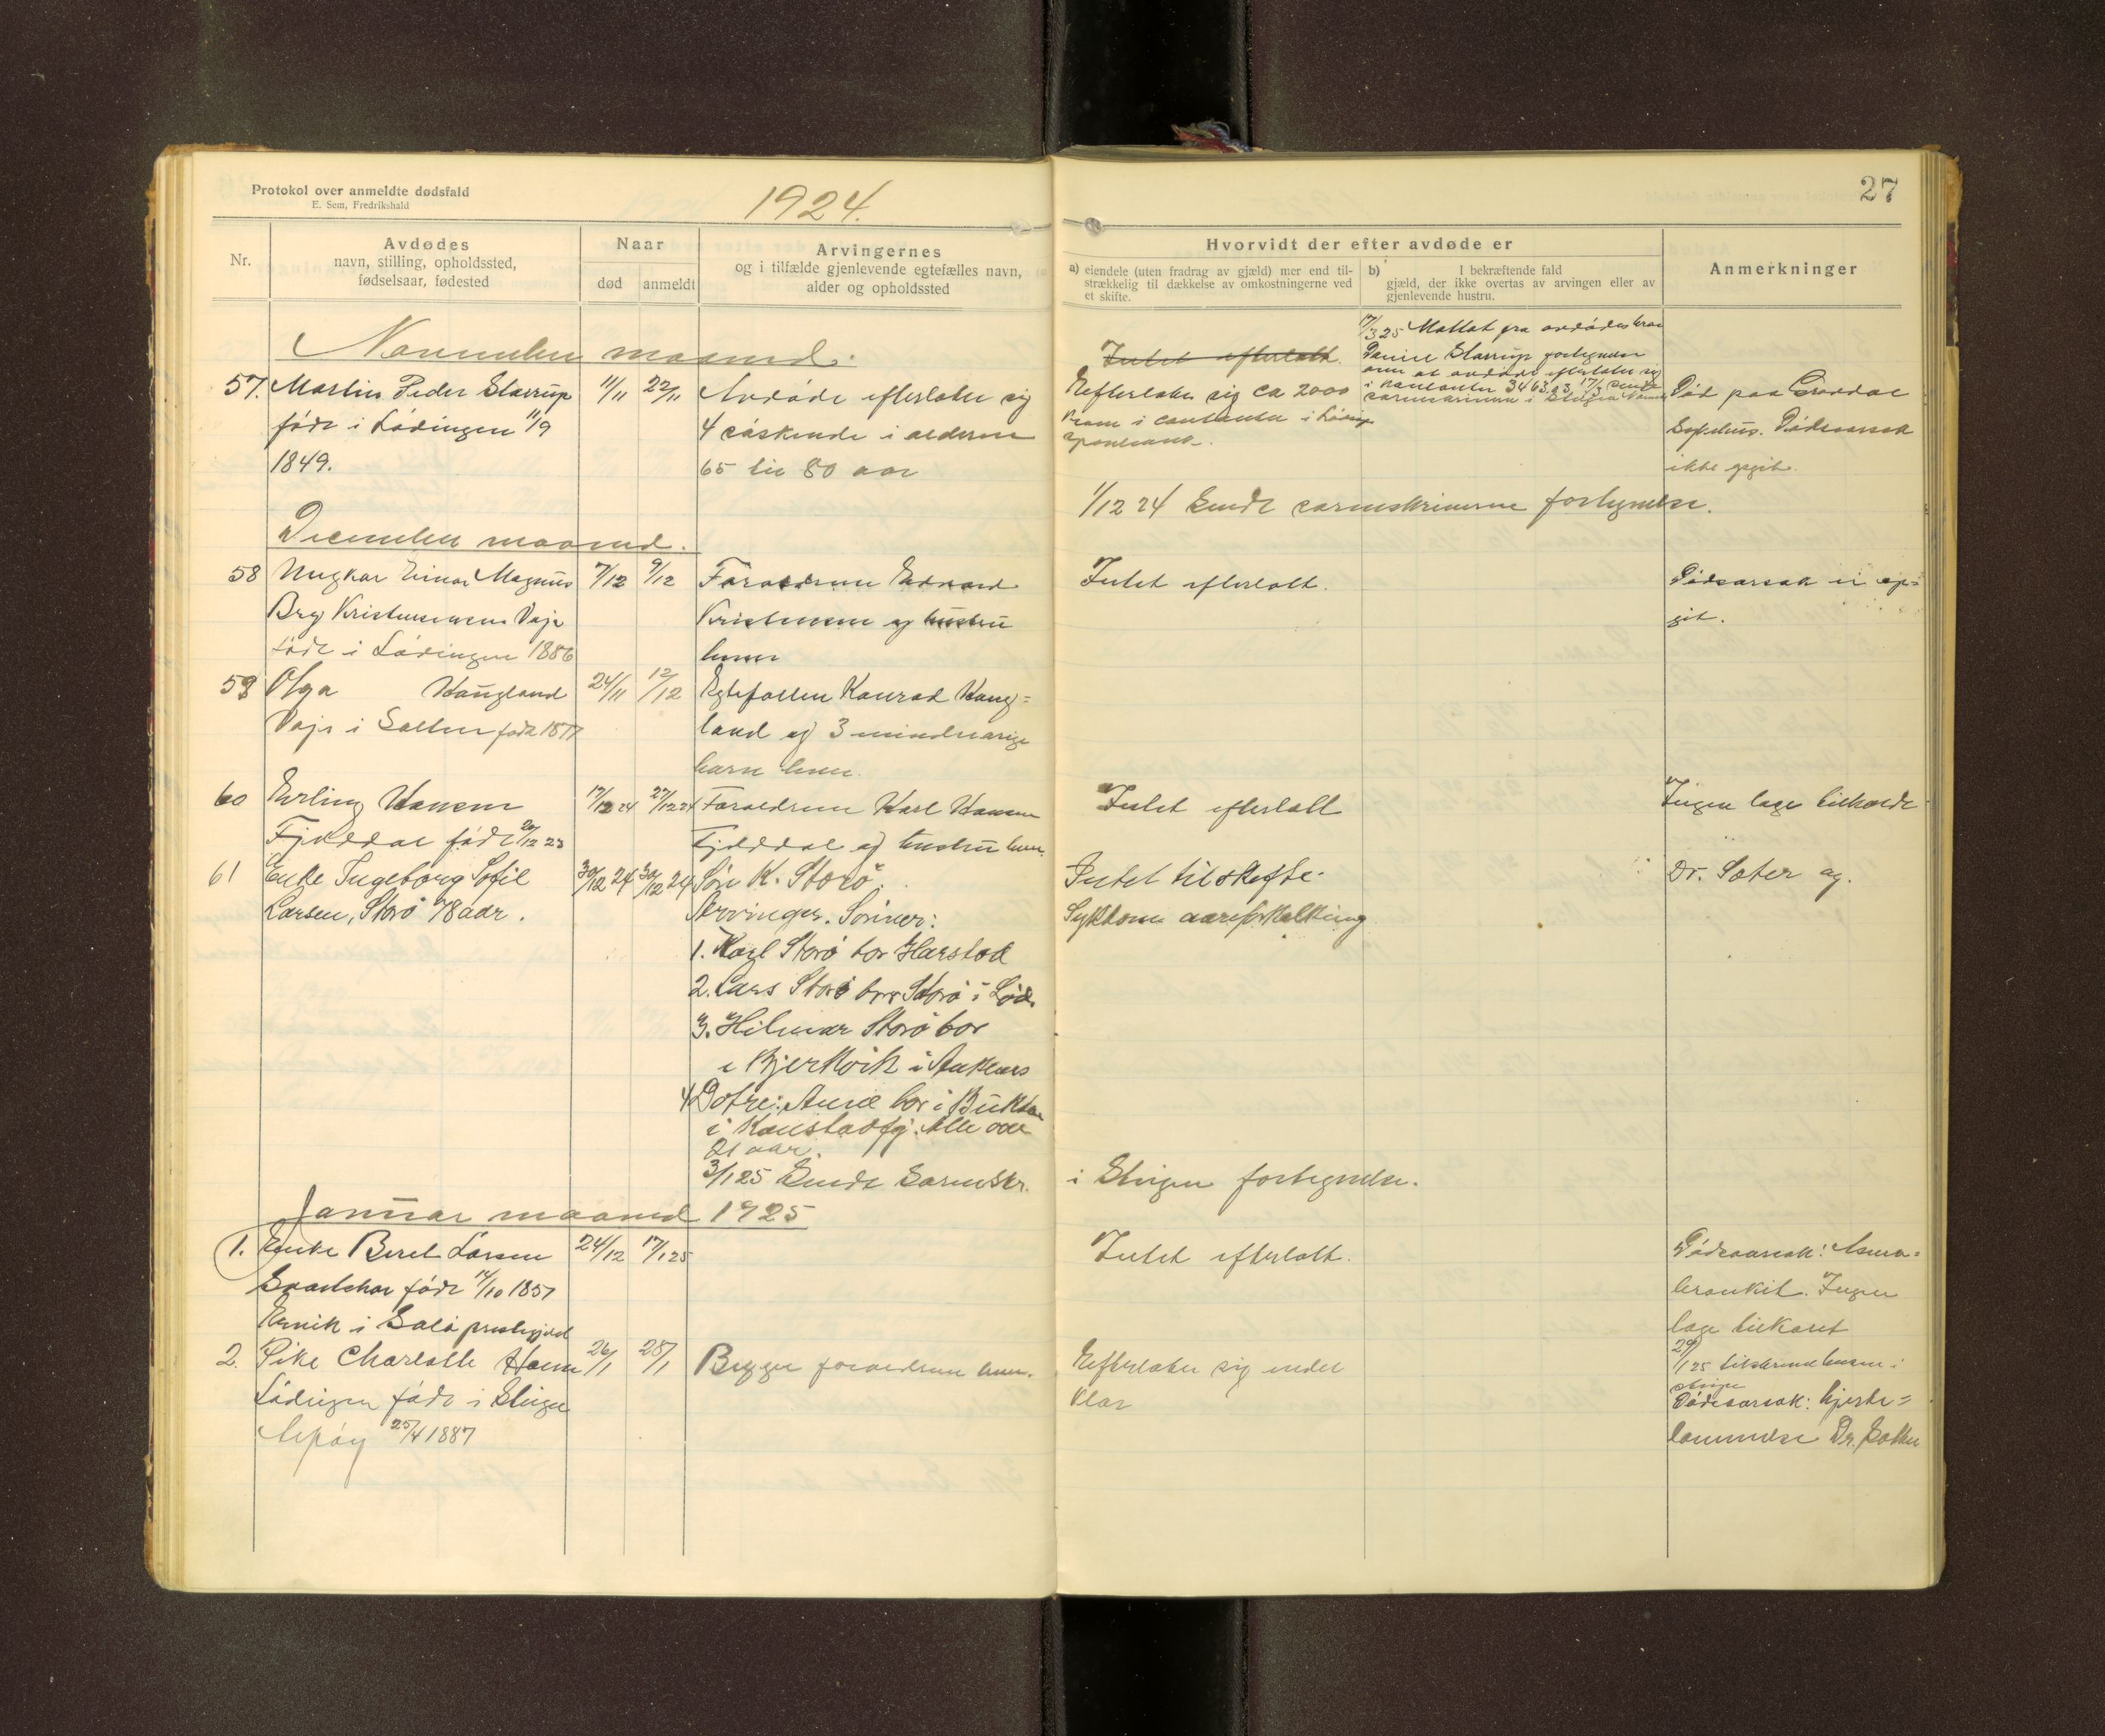 Protokol over anmeldte dødsfald
E. Sem, Fredrikshald
1924.
27
Nr.
Avdødes
navn, stilling, opholdssted,
fødselsaar, fødested
Naar
død
anmeldt
Arvingernes
og i tilfælde gjenlevende egtefælles navn,
alder og opholdssted
Hvorvidt der efter avdøde er
a) eiendele (uten fradrag av gjæld) mer end til-
strækkelig til dækkelse av omkostningerne ved
et skifte.
b) I bekræftende fald
gjæld, der ikke overtas av arvingen eller av
gjenlevende hustru.
Anmerkninger
November maaned.
57. Martin Peder Starrup
født i Lødingen 11/9
1849.
11/11 22/11
Avdøde efterlater sig
4 søskende i alderen
65 til 80 aar
Intet efterlatt
Efterlater sig ca 2000
kroner i contanter i Løding
17/3 25 Mottat fra avdødes
Starrup fortegnelse
over at avdøde efterlater sig
i kontanter 3463,23, 17/3 sendt
Død paa Gravdal
Sykehus. Dødsaarsak
ikke opgit.
1/12 24 Sendt sorenskriveren fortegnelse.
December maaned.
58 Einar Magnus
Berg Kristensen Vaje
født i Lødingen 1886
7/12 9/12
Foraeldrene Edvard
Kristensen og hustru
Intet efterlatt.
Dødsaarsak ei op=
git.
59 Olga Haugland
Vaje i Salten født 1877
24/11 12/12
Egtefællen Konrad Haug=
land og 3 mindreaarige
barn
60 Erling Hansen
Fjelddal født 20/12 23
17/12 24 27/12 24
Foraeldrene Karl Hansen
Fjelddal og hustru
Intet efterlatt
Ingen læge tilkaldt
61 Enke Ingeborg Sofie
Larsen, Storø 78 aar.
30/12 24 30/12 24
Søn K. Storø.
Arvinger. Sønner:
1. Karl Storø bor Harstad
2. Lars Storø bor Storø i Lød.
3. Hilmar Storø bor
i Bjerkvik i Ankenes
4 Dotre: Anne bor i Bukten
i Kanstadfj. Alle over
21 aar.
Intet til skifte.
Sykdom aareforkalkning
Dr. Sæter ag.
3/1 25 Sendt Sorenskr. i Steigen fortegnelse.
Januar maaned 1925
1. Enke Beret Larsen
Svartskar født 14/10 1857
i Salø prestegjeld
24/12 17/1 25
Intet efterlatt.
Dødsaarsak: Asma=
bronkit. Ingen
læge tilkaldt
2. Pike Charlotte Holm
Lødingen født i Steigen
25/4 1887
26/1 28/1
Begge foraeldrene
Efterlater sig endel
klær
29/1 25
Dødsaarsak: hjerte=
lammelse Dr.